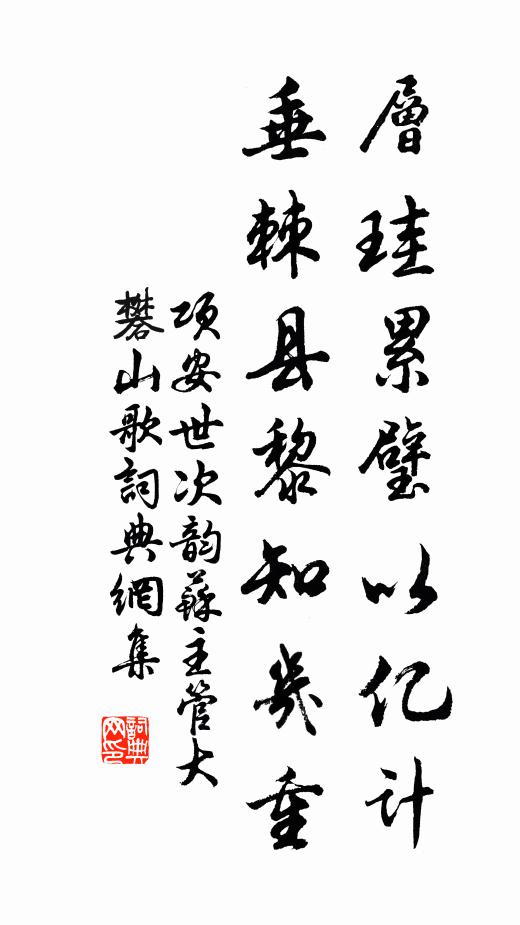 層珪累璧以亿计
垂棘县黎知幾重
项安世次韵蘇主管大
礬山歌詞典網集
詞典网印